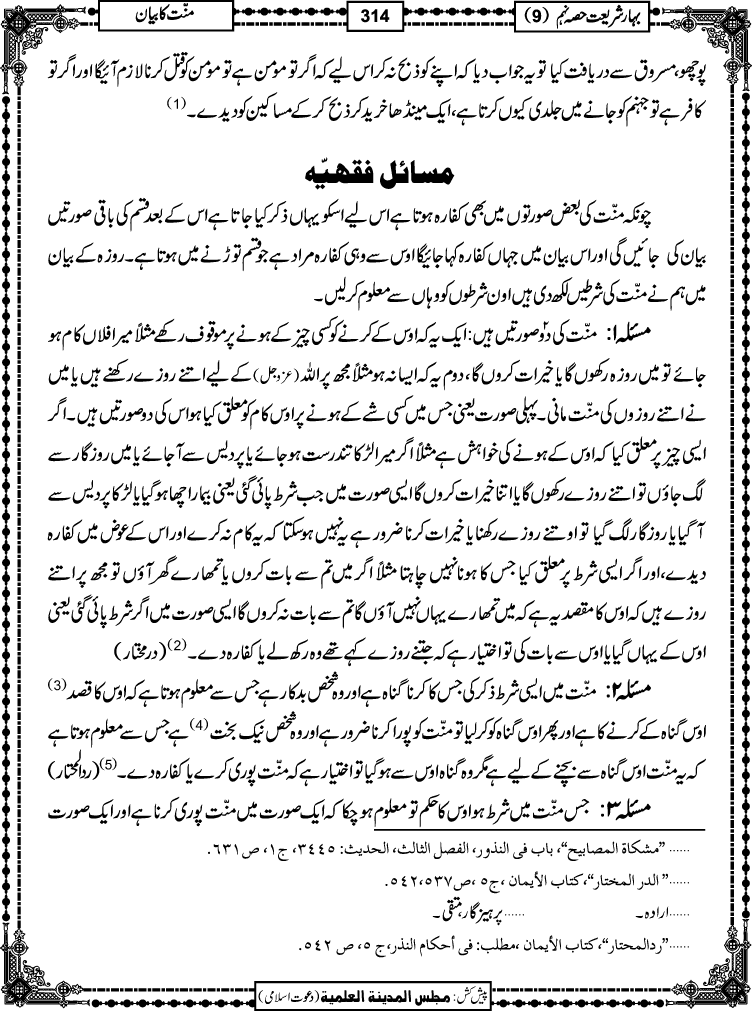 بہارِ شریعت حصہ نہم (9)
314
منّت کا بیان
پوچھو، مسروق سے دریافت کیا تو یہ جواب دیا کہ اپنے کو ذبح نہ کر اس لیے کہ اگر تو مومن ہے تو مومن کو قتل کرنا لازم آئیگا اور اگر تو
کافر ہے تو جہنم کو جانے میں جلدی کیوں کرتا ہے، ایک مینڈھا خرید کر ذبح کر کے مساکین کو دیدے۔ (1)
مسائل فقهیّه
چونکہ منّت کی بعض صورتوں میں بھی کفارہ ہوتا ہے اس لیے اسکو یہاں ذکر کیا جاتا ہے اس کے بعد قسم کی باقی صورتیں
بیان کی جائیں گی اور اس بیان میں جہاں کفارہ کہا جائیگا اوس سے وہی کفارہ مراد ہے جو قسم توڑنے میں ہوتا ہے۔ روزہ کے بیان
میں ہم نے منّت کی شرطیں لکھ دی ہیں اون شرطوں کو وہاں سے معلوم کر لیں۔
مسئلہ ۱: منّت کی دو صورتیں ہیں: ایک یہ کہ اوس کے کرنے کو کسی چیز کے ہونے پر موقوف رکھے مثلاً میرا فلاں کام ہو
جائے تو میں روزہ رکھوں گا یا خیرات کروں گا، دوم یہ کہ ایسا نہ ہو مثلاً مجھ پر اللہ (عزوجل) کے لیے اتنے روزے رکھنے ہیں یا میں
نے اتنے روزوں کی منّت مانی۔ پہلی صورت یعنی جس میں کسی شے کے ہونے پر اوس کام کو معلق کیا ہو اس کی دو صورتیں ہیں۔ اگر
ایسی چیز پر معلق کیا کہ اوس کے ہونے کی خواہش ہے مثلاً اگر میرا لڑکا تندرست ہو جائے یا پردیس سے آجائے یا میں روزگار سے
لگ جاؤں تو اتنے روزے رکھوں گا یا اتنا خیرات کروں گا ایسی صورت میں جب شرط پائی گئی یعنی بیمار اچھا ہو گیا یا لڑکا پردیس سے
آگیا یا روزگار لگ گیا تو اوتنے روزے رکھنا یا خیرات کرنا ضرور ہے یہ نہیں ہو سکتا کہ یہ کام نہ کرے اور اس کے عوض میں کفارہ
دیدے، اور اگر ایسی شرط پر معلق کیا جس کا ہونا نہیں چاہتا مثلاً اگر میں تم سے بات کروں یا تمھارے گھر آؤں تو مجھ پر اتنے
روزے ہیں کہ اوس کا مقصد یہ ہے کہ میں تمھارے یہاں نہیں آؤں گا تم سے بات نہ کروں گا ایسی صورت میں اگر شرط پائی گئی یعنی
اوس کے یہاں گیا یا اوس سے بات کی تو اختیار ہے کہ جتنے روزے کہے تھے وہ رکھ لے یا کفارہ دے۔ (2) (درمختار)
مسئلہ ۲: منّت میں ایسی شرط ذکر کی جس کا کرنا گناہ ہے اور وہ شخص بدکار ہے جس سے معلوم ہوتا ہے کہ اوس کا قصد (3)
اوس گناہ کے کرنے کا ہے اور پھر اوس گناہ کو کر لیا تو منّت کو پورا کرنا ضرور ہے اور وہ شخص نیک بخت (4) ہے جس سے معلوم ہوتا ہے
کہ یہ منّت اوس گناہ سے بچنے کے لیے ہے مگر وہ گناہ اوس سے ہو گیا تو اختیار ہے کہ منّت پوری کرے یا کفارہ دے۔ (5) (ردالمحتار)
مسئلہ ۳: جس منّت میں شرط ہو اوس کا حکم تو معلوم ہو چکا کہ ایک صورت میں منّت پوری کرنا ہے اور ایک صورت
...... "مشكاة المصابيح"، باب فى النذور، الفصل الثالث، الحديث: ٣٤٤٥، ج١، ص٦٣١.
...... "الدر المختار"، كتاب الأيمان، ج٥، ص٥٣٧،٥٤٢.
...... ارادہ۔ ...... پرہیزگار، متقی۔
...... "ردالمحتار"، كتاب الأيمان، مطلب: فى أحكام النذر، ج٥، ص ٥٤٢.
پیش کش: مجلس المدینة العلمیة (دعوت اسلامی)